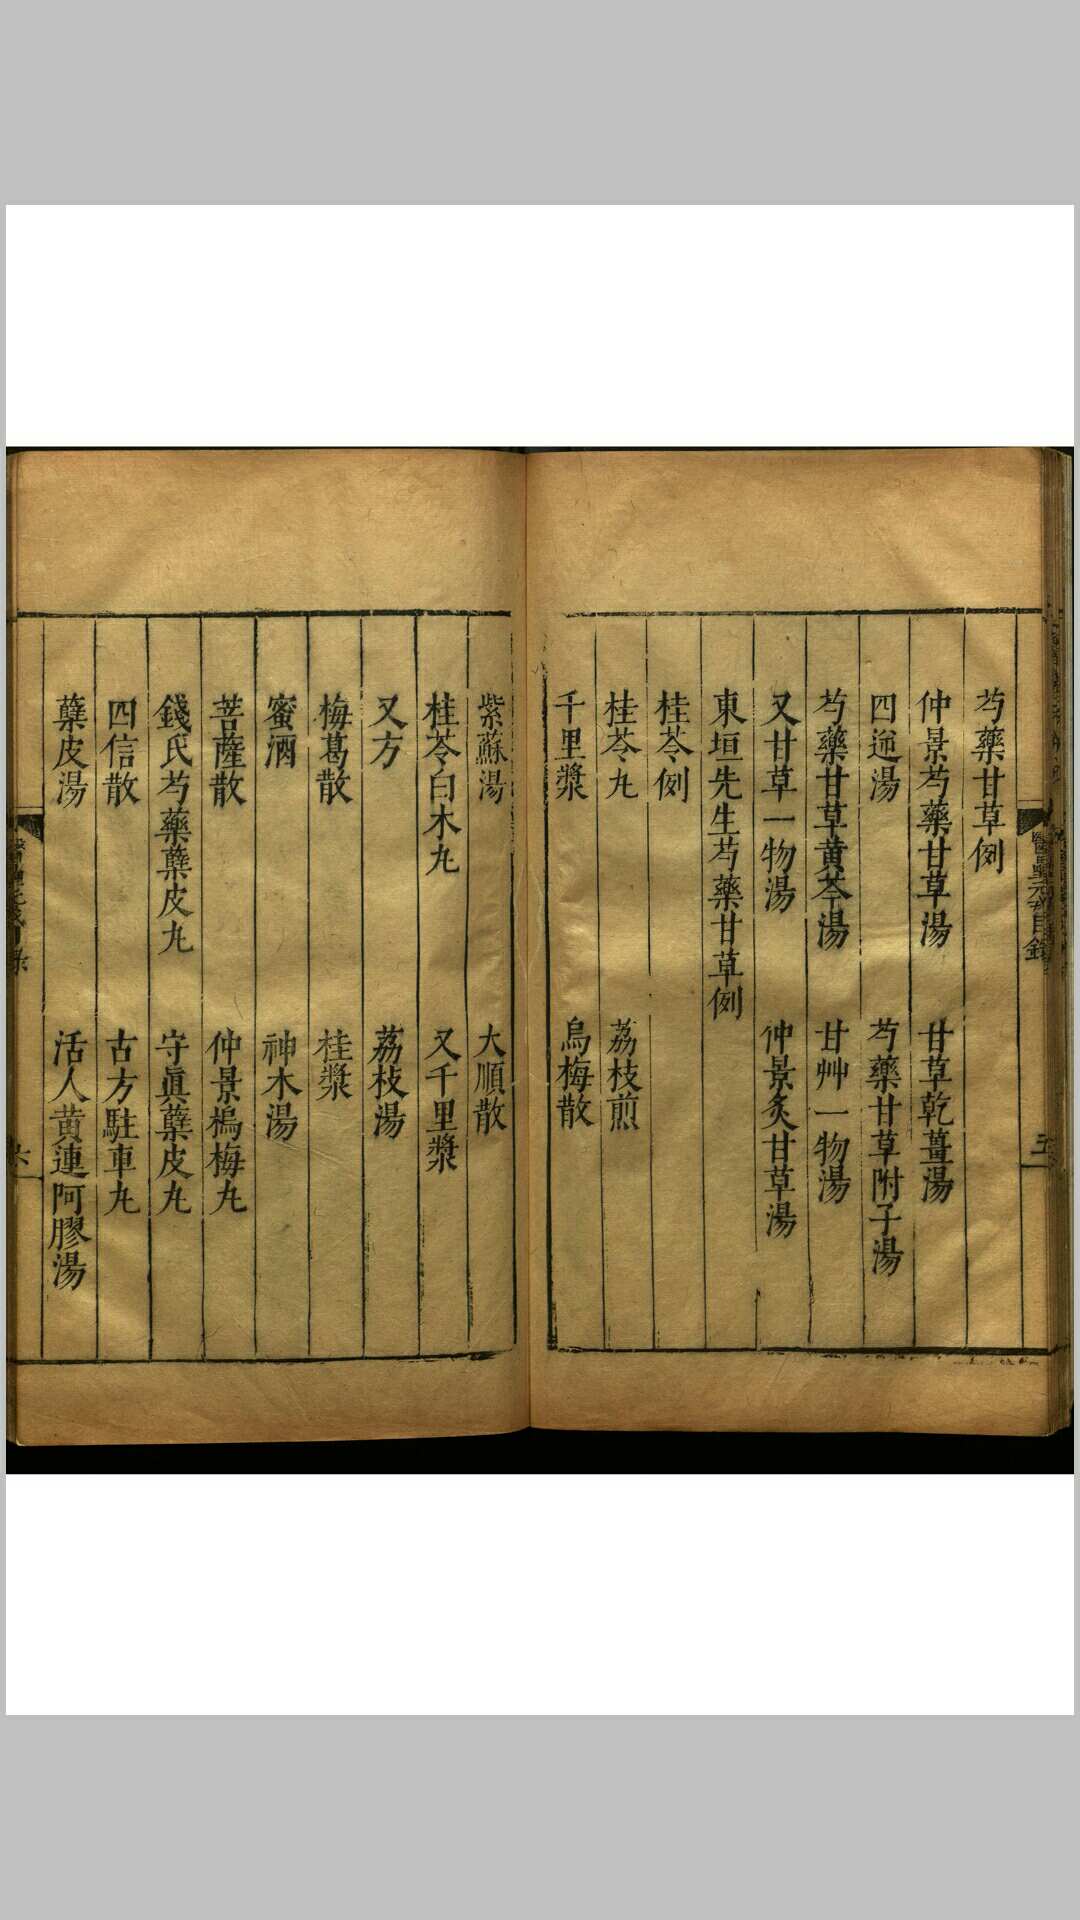 芍藥甘草例
仲景芍藥甘草湯　甘草乾薑湯
四逆湯　芍藥甘草附子湯
芍藥甘草黄芩湯　甘艸一物湯
又甘草一物湯　仲景炙甘草湯
東垣先生芍藥甘草例
桂苓例
桂苓丸　荔枝煎
千里漿　烏梅散
紫蘇湯　大順散
桂苓白木丸　又千里漿
又方　荔枝湯
梅葛散　桂漿
蜜酒　神木湯
菩薩散　仲景梅丸
錢氏芍藥蘗皮丸　守眞蘗皮丸
四信散　古方駐車丸
蘗皮湯　活人黄連阿膠湯
醫壘元戎目錄
五
六